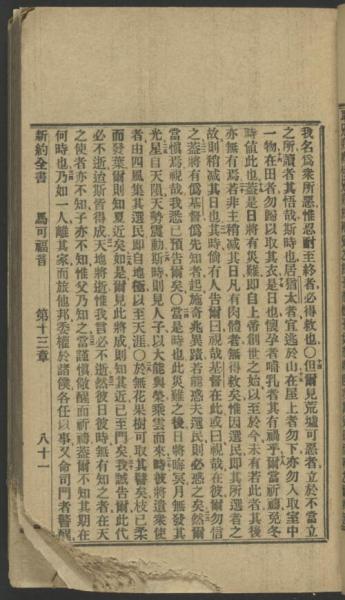 我名爲衆所惡惟忍耐至終者必得救也〇但爾見荒墟可惡者立於不當立
之所讀者其悟哉斯時也居猶太者宜逃於山在屋上者勿下亦勿入取室中
一物在田者勿歸以取其衣是日也懷孕者哺乳者其有禍乎爾當祈禱免冬
時値此也蓋是日將有災難卽自上帝創世之始以至於今未有若此者其後
亦無有焉若非主稍減其日凡有肉體者無得救矣惟因選民卽其所選者之
故則稍減其日也其時倘有人告爾曰視哉基督在此或曰視哉在彼爾勿信
之蓋將有僞基督僞先知者起施奇兆異蹟若能惑夫選民則必惑之矣然爾
當愼焉視哉我悉已預告爾矣〇當是時也此災難之後日將晦冥月無發其
光星自天隕天勢震動斯時則見人子以大能與榮乘雲而來時彼將遣衆使
者由四風集其選民卽自地極以至天涯〇於無花果樹可取其譬矣枝已柔
而發葉爾則知夏近矣如是爾見此將成則知其近已至門矣我誠告爾此代
必不逝迨斯皆得成天地將逝惟我言必不逝然彼日彼時無有知之者在天
之使者亦不知子亦不知惟父乃知之當謹愼儆醒而祈禱蓋爾不知其期在
何時也乃如一人離其家而旅他邦委權於諸僕各任以事又命司門者警醒
新約全書　馬可福音　第十三章　八十一